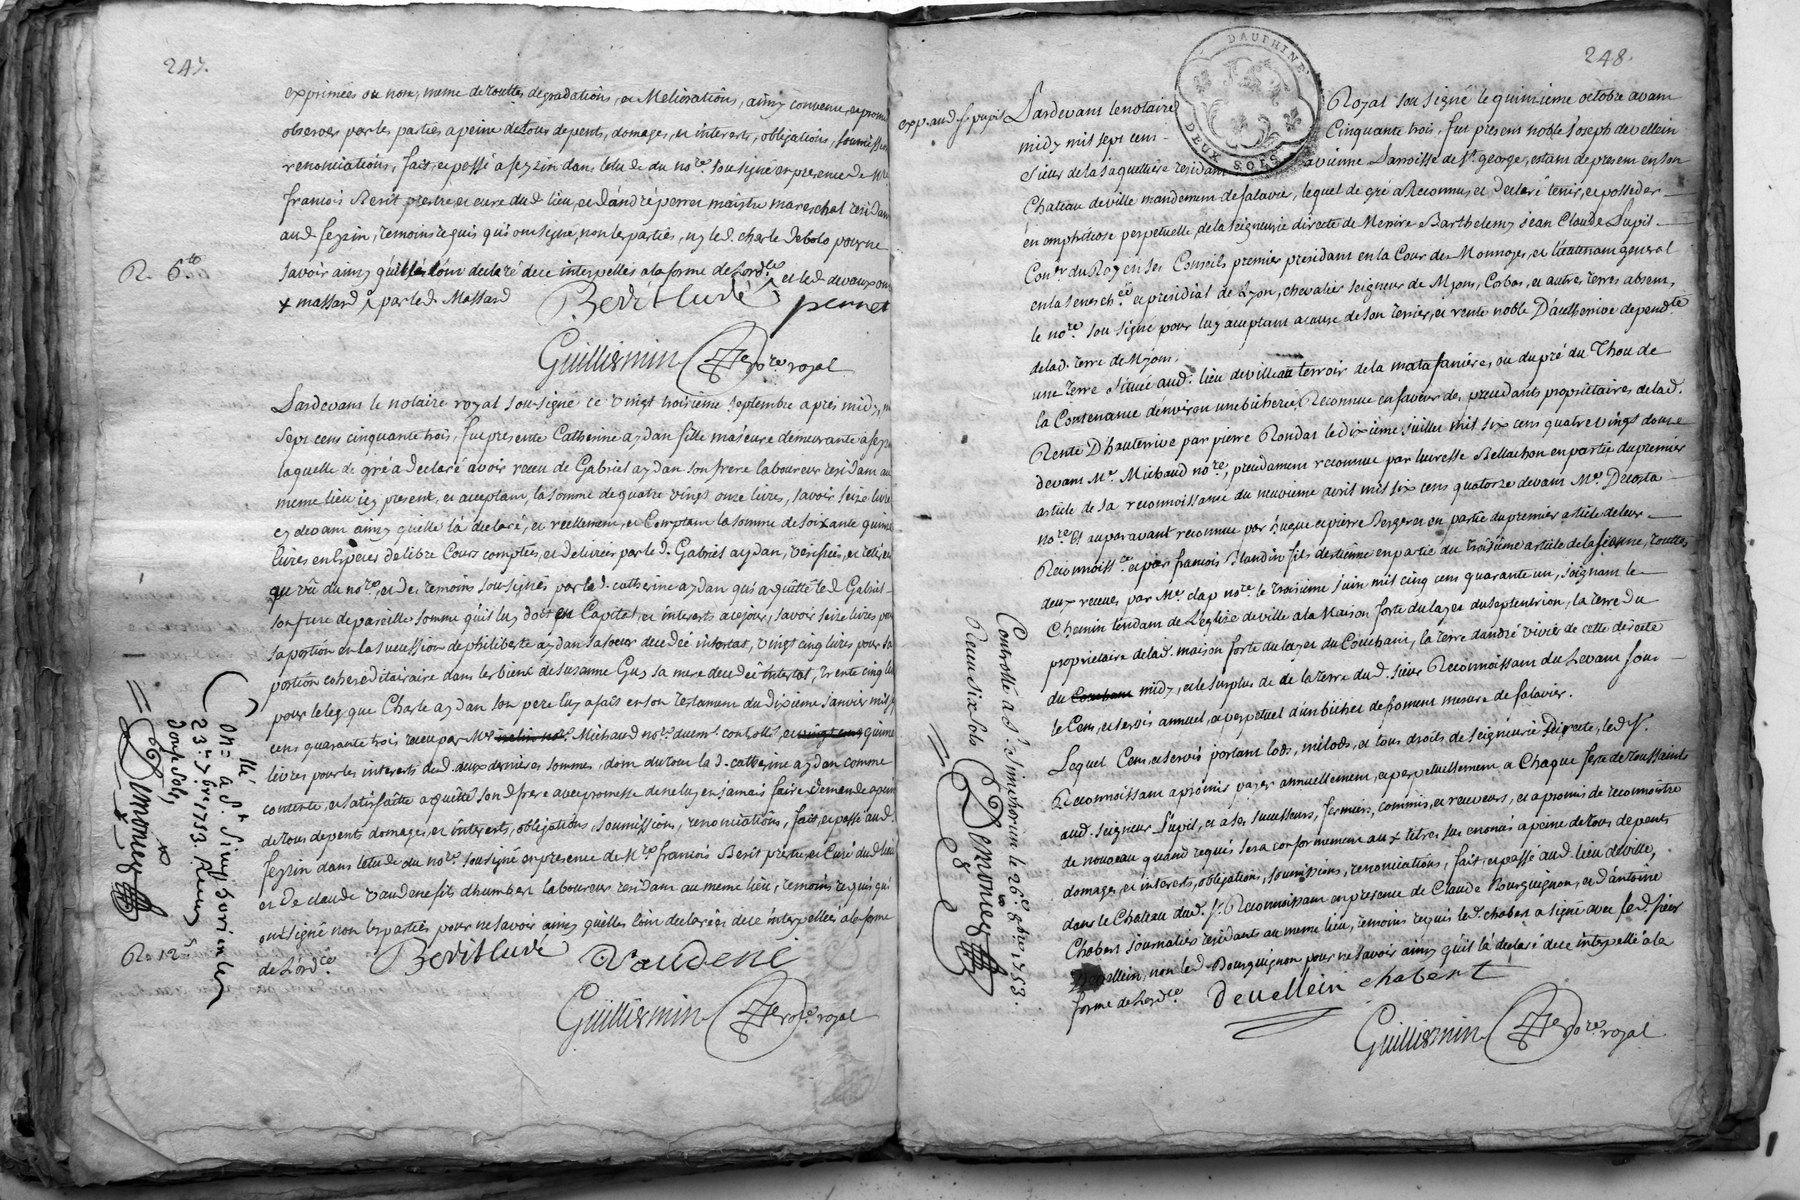 247.
exprimées ou non, meme de touttes degradations, et Meliorations, ainsy convenu, et promis
observer par les parties a peine de tous depents, domages, et interests, obligations, soumissions
renonciations, fait, et passé a feyzin dans letude du nore. sousigné en presence de Mre
francois Berit prestre, et curé dud. lieu, et d'andré perret maistre mareschal residant
aud. feyzin, temoins requis qui ont signé, non le parties, ny led. charle debolo pour ne
savoir ainsy quils lont declaré de ce interpellés a la forme de Lordce. et led. devaux ou
x massard par led. Massard
R. 6
Berit Curé
perret
Guilliermin nore. royal
Pardevant le notaire royal sousigné ce vingt troisieme septembre apres midy, mil
sept cens cinquante trois, fut presente Catherine aydan fille majeure demeurante a feyzin
laquelle de gré a declaré avoir receu de Gabriel aydan son frere laboureur residant au
meme lieu icy present, et acceptant, la somme de quatre vingt onze livres, savoir seize livres
cy devant ainsy quelle la declaré, et reellement, et Comptant la somme de soixante quinze
livres en Especes de libre Cours comptées, et delivrées par led. Gabriel aydan, verifiée, et retirée
au vû du nore. et des temoins sousignés par lad. catherine aydan qui a quitté led. Gabriel
son frere de pareille somme qu'il luy doit en Capital, et interests a ce jour, savoir seize livres pour
sa portion en la succession de philiberte aydan sa soeur decedée intestat, vingt cinq livres pour sa
portion cohereditairaire dans les biens de susanne Guy sa mere decedée intestat, trente cinq livres
pour le leg que Charle aydan son pere luy a fait en son testament du dixieme janvier mil sept
cens quarante trois receu par Mre Michaud nore. duemt. controllé, et quinze
livres pour les interests des d. deux dernieres sommes, dont du tout la d. catherine aydan comme
contente, et satisfaitte a quitté son d. frere avec promesse de ne luy en jamais faire demande a peine
de tous depents, domages, et interests, obligations, soumissions, renonciations, fait, et passé aud.
feyzin dans letude du nore. sousigné en presence de Mre francois Berit prestre, et Curé dud. lieu
et de claude vaudene fils d'humbert laboureur residant au meme lieu, temoins requis qui
ont signé non les parties pour ne savoir ainsy quelles lont declarée de ce interpellées a la forme
de Lordce.
Berit Curé Vaudené
Guilliermin nore. royal
a St. Simphorien le
23e. 7bre 1753. Receu
douze sols,
Demonier
R. 12s
248.
DAUPHINÉ
DEUX SOLS
exp. aud. sr. pupil
Pardevant le notaire Royal sousigné le quinzieme octobre avant
midy mil sept cens Cinquante trois, fut present noble Joseph devellein
sieur de la saquettiere residant a vienne Parroisse de St. george, estant de present en son
Chateau deville mandement de falavier, lequel de gré a Reconnu, et declaré tenir, et posseder
en emphiteose perpetuelle de la seigneurie directe de Messire Barthelemy jean Claude Pupil
Coner. du Roy en ses Conseils premier president en la Cour des Monnoyes, et lieutenant general
en la seneschée. et presidial de Lyon, chevalier seigneur de Myons, Corbas, et autres terres absent,
le nore. sousigné pour luy acceptant a cause de son terrier, et rente noble D'autherive dependte
de lad. terre de Myons.
une terre Située aud. lieu deville au terroir de la mata faniere, ou du pré du Thou de
la Contenance d'environ une bicherée, Reconnue en faveur des precedants proprietaires de lad.
Rente D'hauterive par pierre Rondat le dixieme juillet mil six cens quatre vingt douze
devant Me. Michaud nore., precedament reconnue par lucresse Bellachon en partie du premier
article de sa reconnoissance du neuvieme avril mil six cens quatorze devant Me. Decosta
nore. Et auparavant reconnue par hugue et pierre Berger et en partie du premier article de leur
Reconnoissce. et par francois Blandin fils d'estienne en partie du troisieme article de la sienne, touttes
deux receues par Me. clap nore. le troisieme juin mil cinq cens quarante un, joignant le
Chemin tendant de L'eglise deville a la Maison forte du layer du Septentrion, la terre du
proprietaire de lad. maison forte du layer du Couchant, la terre d'andré vivié de cette directe
du midy, et le surplus de de la terre du d. sieur Reconnoissant du Levant sous
le Cens, et servis annuel, et perpetuel d'un bichet de froment mesure de falavier.
Lequel Cens, et servis portant lods, milods, et tous droits de seigneurie Directe, led. Sr.
Reconnoissant a promis payer annuellement, et perpetuellement a Chaque feste de toussaints
aud. seigneur Pupil, et a ses successeurs, fermiers, commis, et receveurs, et a promis de reconnoitre
de nouveau quand requis sera conformement aux titres sus enoncés a peine de tous depents
domages, et interests, obligations, soumissions, renonciations, fait, et passé aud. lieu deville,
dans le Chateau dud. Sr. Reconnoissant en presence de Claude Bourguignon, et d'antoine
Chabert journaliers residants au meme lieu, temoins requis led. chabert a signé avec led. sieur
Devellein, non led. Bourguignon pour ne savoir ainsy qu'il la declaré de ce interpellé a la
forme de Lordce.
devellein chabert
Guilliermin nore. royal
Controllé a St. Simphorien le 26e. 8bre 1753.
Receu six sols
Demonier